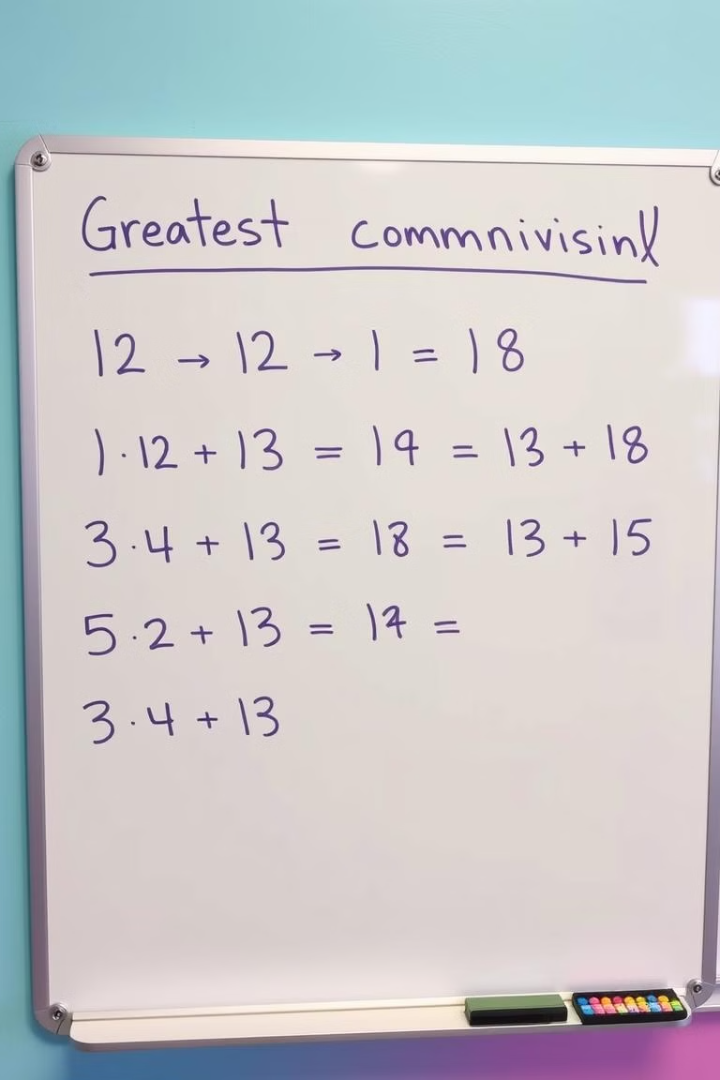 Greatest commnivisinl
12 → 12 → 1 = 18
1·12 + 13 = 19 = 13 + 18
3·4 + 13 = 18 = 13 + 15
5·2 + 13 = =
3·4 + 13